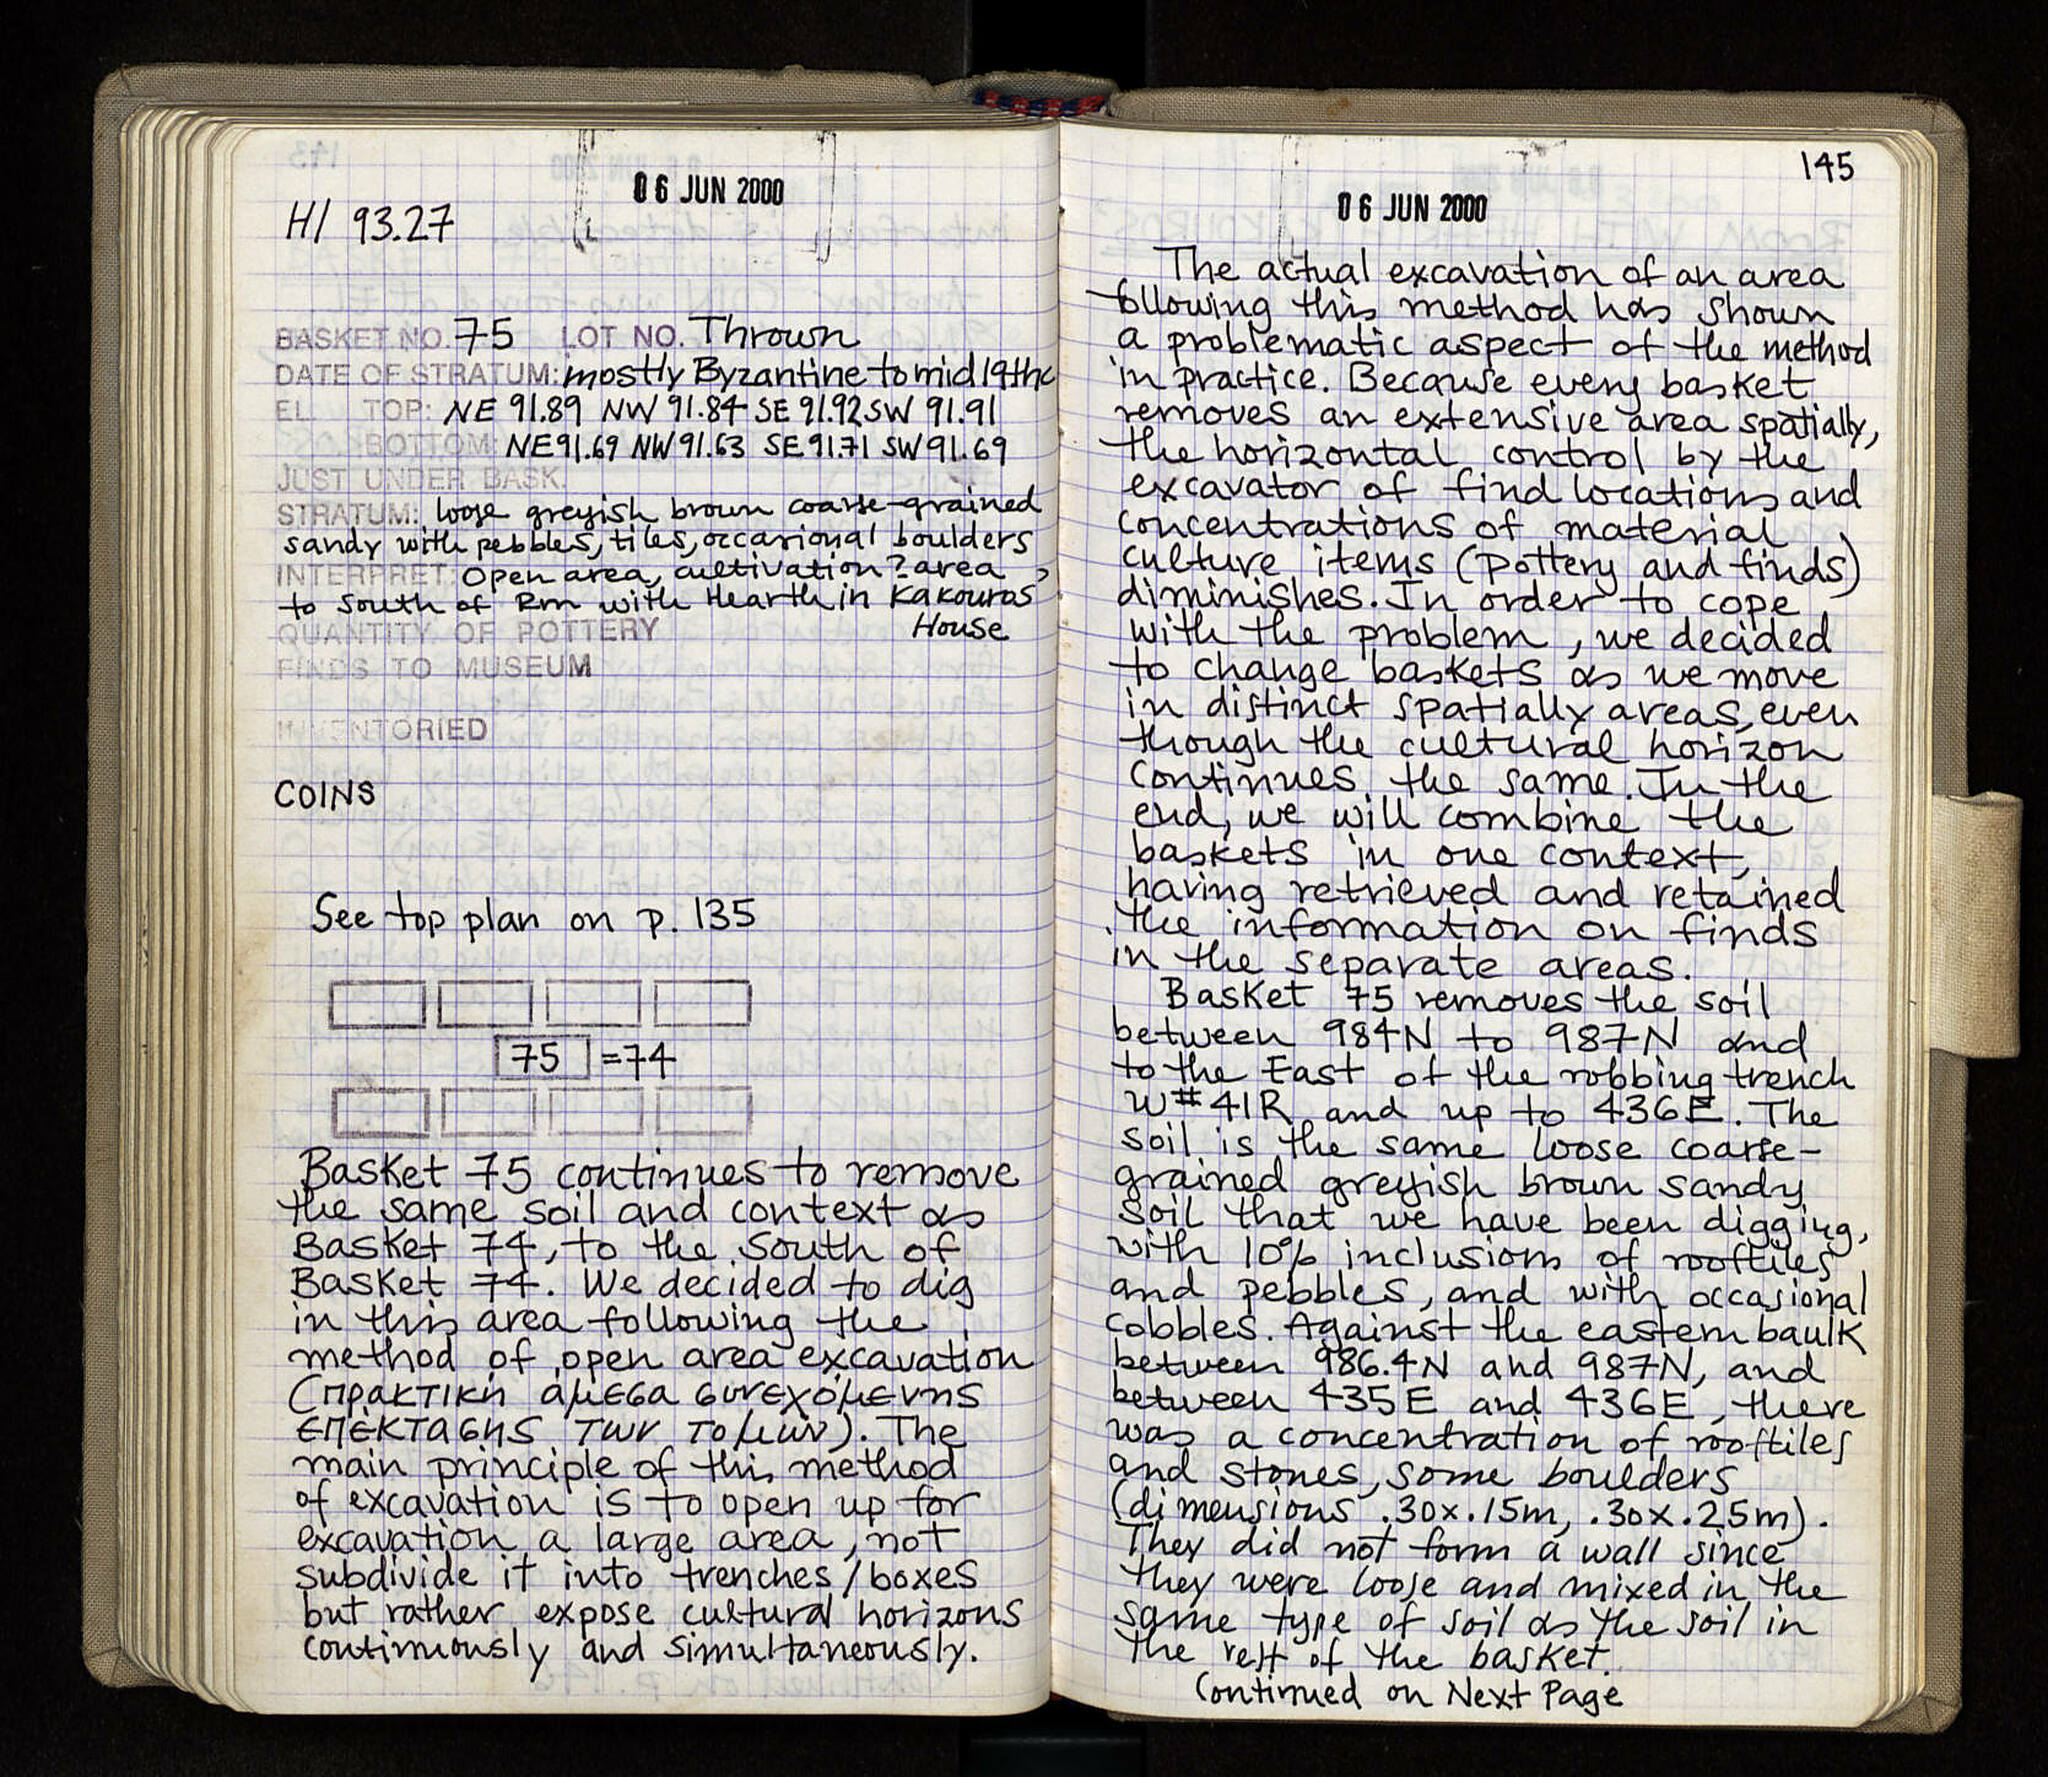 06 JUN 2000
HI 93.27
BASKET NO. 75 LOT NO. Thrown
DATE OF STRATUM: mostly Byzantine to mid 19thc
EL. TOP: NE 91.89 NW 91.84 SE 91.92 SW 91.91
BOTTOM: NE 91.69 NW 91.63 SE 91.71 SW 91.69
JUST UNDER BASK.
STRATUM: loose greyish brown coarse-grained
sandy with pebbles, tiles, occasional boulders
INTERPRET: Open area, cultivation? area,
to south of Rm with Hearth in Kakouros
House
QUANTITY OF POTTERY
FINDS TO MUSEUM
INVENTORIED
COINS
See top plan on p. 135
75 =74
Basket 75 continues to remove
the same soil and context as
Basket 74, to the South of
Basket 74. We decided to dig
in this area following the
method of open area excavation
(πρακτική άμεσα συνεχόμενης
επέκτασης των τομών). The
main principle of this method
of excavation is to open up for
excavation a large area, not
subdivide it into trenches/boxes
but rather expose cultural horizons
continuously and simultaneously.
145
06 JUN 2000
The actual excavation of an area
following this method has shown
a problematic aspect of the method
in practice. Because every basket
removes an extensive area spatially,
the horizontal control by the
excavator of find locations and
concentrations of material
culture items (pottery and finds)
diminishes. In order to cope
with the problem, we decided
to change baskets as we move
in distinct spatially areas, even
though the cultural horizon
continues the same. In the
end, we will combine the
baskets in one context,
having retrieved and retained
the information on finds
in the separate areas.
Basket 75 removes the soil
between 984N to 987N and
to the East of the robbing trench
W#41R and up to 436E. The
soil is the same loose coarse-
grained greyish brown sandy
soil that we have been digging,
with 10% inclusions of rooftiles
and pebbles, and with occasional
cobbles. Against the eastern baulk
between 986.4N and 987N, and
between 435E and 436E, there
was a concentration of rooftiles
and stones, some boulders
(dimensions .30x.15m, .30x.25m).
They did not form a wall since
they were loose and mixed in the
same type of soil as the soil in
the rest of the basket.
Continued on Next Page